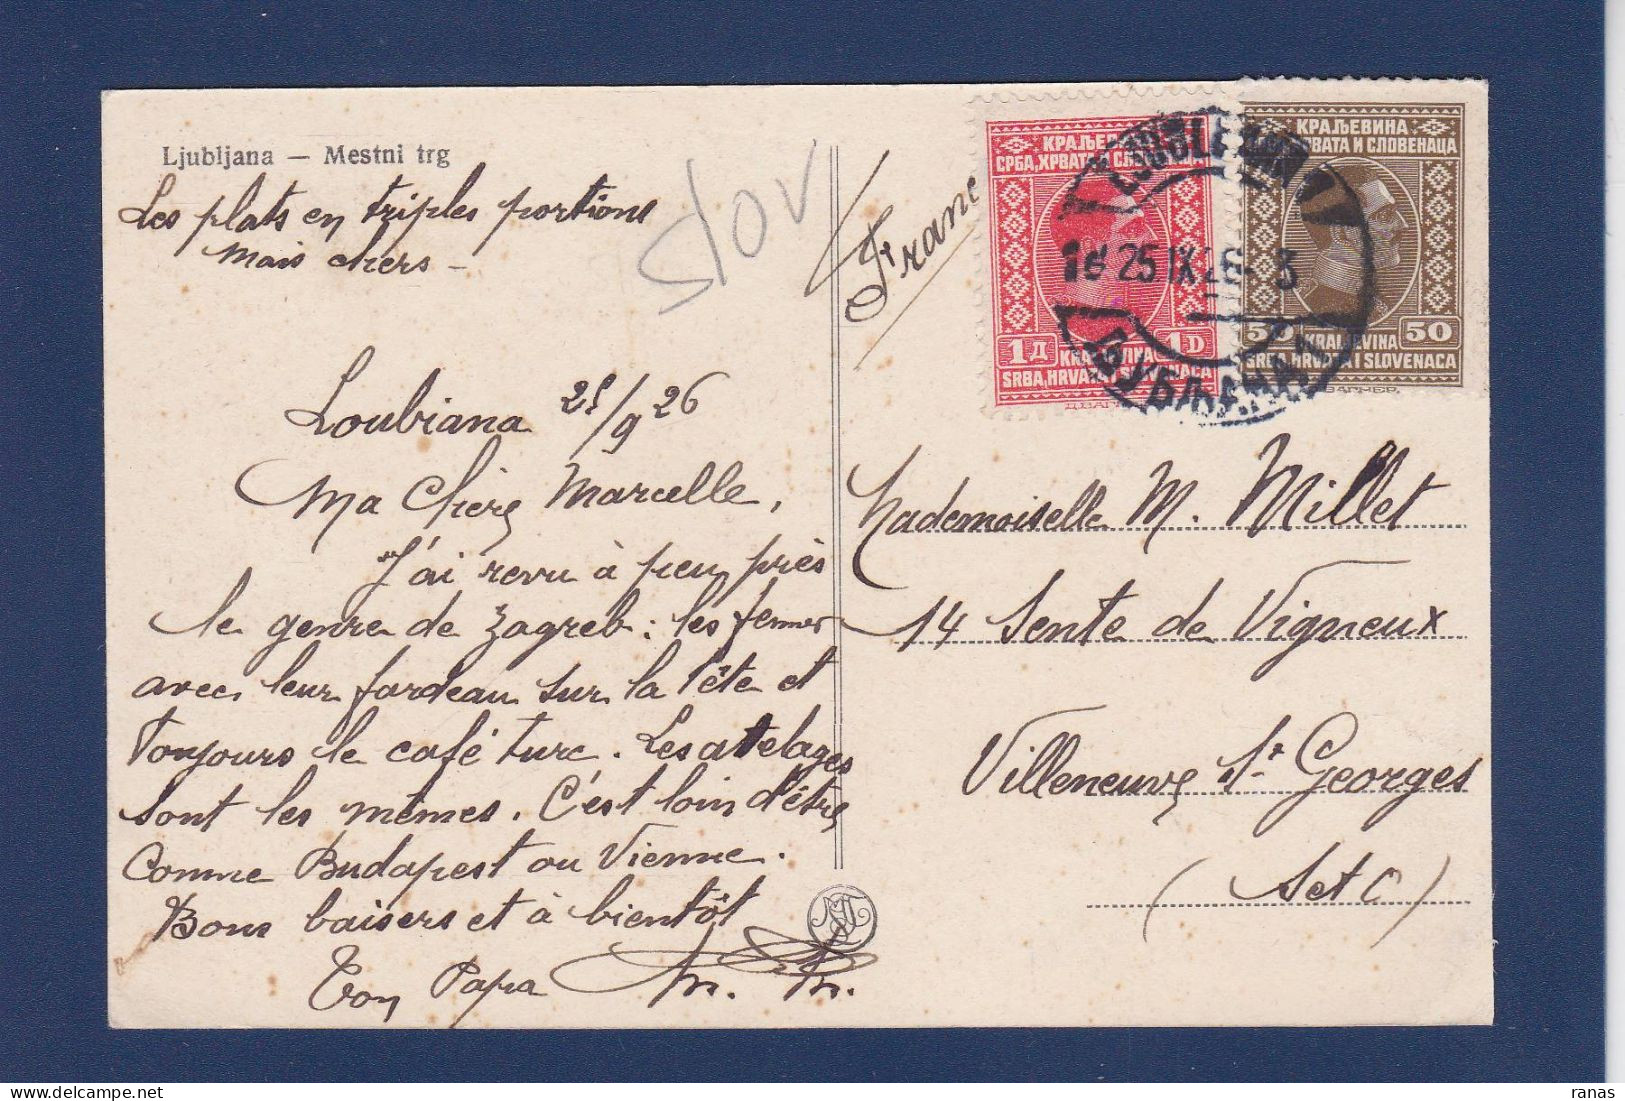 Ljubljana — Mestni trg
Les plats en triples portions
mais chers –
Slov
France
Loubiana 25/9 26
Ma chère Marcelle,
J'ai revu à peu près
le genre de Zagreb : les femmes
avec leur fardeau sur la tête et
toujours le café turc. Les attelages
sont les mêmes. C'est loin d'être
comme Budapest ou Vienne.
Bons baisers et à bientôt
Ton Papa M. M.
КРАЉЕВИНА
СРБА, ХРВАТА И СЛОВЕНАЦА
1Д 1D
KRALJEVINA
SRBA, HRVATA I SLOVENACA
КРАЉЕВИНА
ХРВАТА И СЛОВЕНАЦА
50 50
KRALJEVINA
SRBA, HRVATA I SLOVENACA
LJUBLJANA 1
25 IX 26 - 3
ЉУБЉАНА
Mademoiselle M. Millet
14 Sente de Vigneux
Villeneuve St Georges
(S et O)
ranas